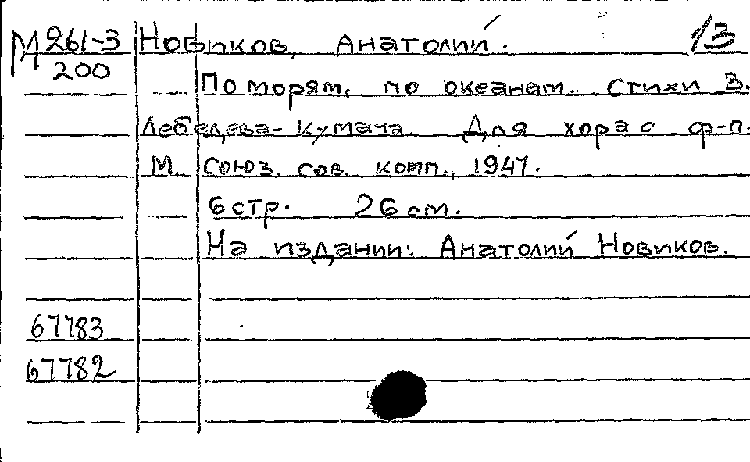 М 261-3 Новиков, Анатолий. 13
200
По морям, по океанам. Стихи В.
Лебедева-Кумача. Для хора с ф-п.
М. Союз. сов. комп., 1947.
6 стр. 26 см.
На издании: Анатолий Новиков.
67783
67782